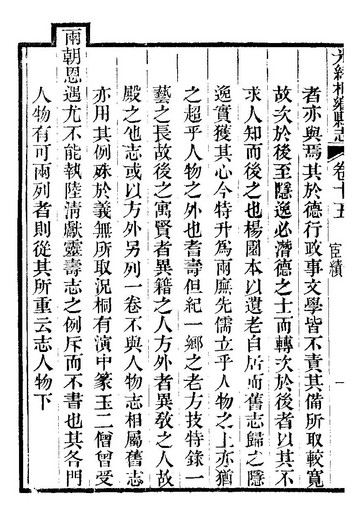 光緒桐鄉縣志 卷十五 宦績
者亦與焉其於德行政事文學皆不責其備所取較寬
故次於後至隱逸必潛德之士而轉次於後者以其不
求人知而後之也楊園本以遺老自居而舊志歸之隱
逸實獲其心今特升爲兩廡先儒立乎人物之上亦猶
之超乎人物之外也耆壽但紀一鄉之老方技特錄一
藝之長故後之寓賢者異籍之人方外者異敎之人故
殿之他志或以方外另列一卷不與人物志相屬舊志
亦用其例殊於義無所取況桐有演中篆玉二僧曾受
兩朝恩遇尤不能執陸淸獻靈壽志之例斥而不書也其各門
人物有可兩列者則從其所重云志人物下